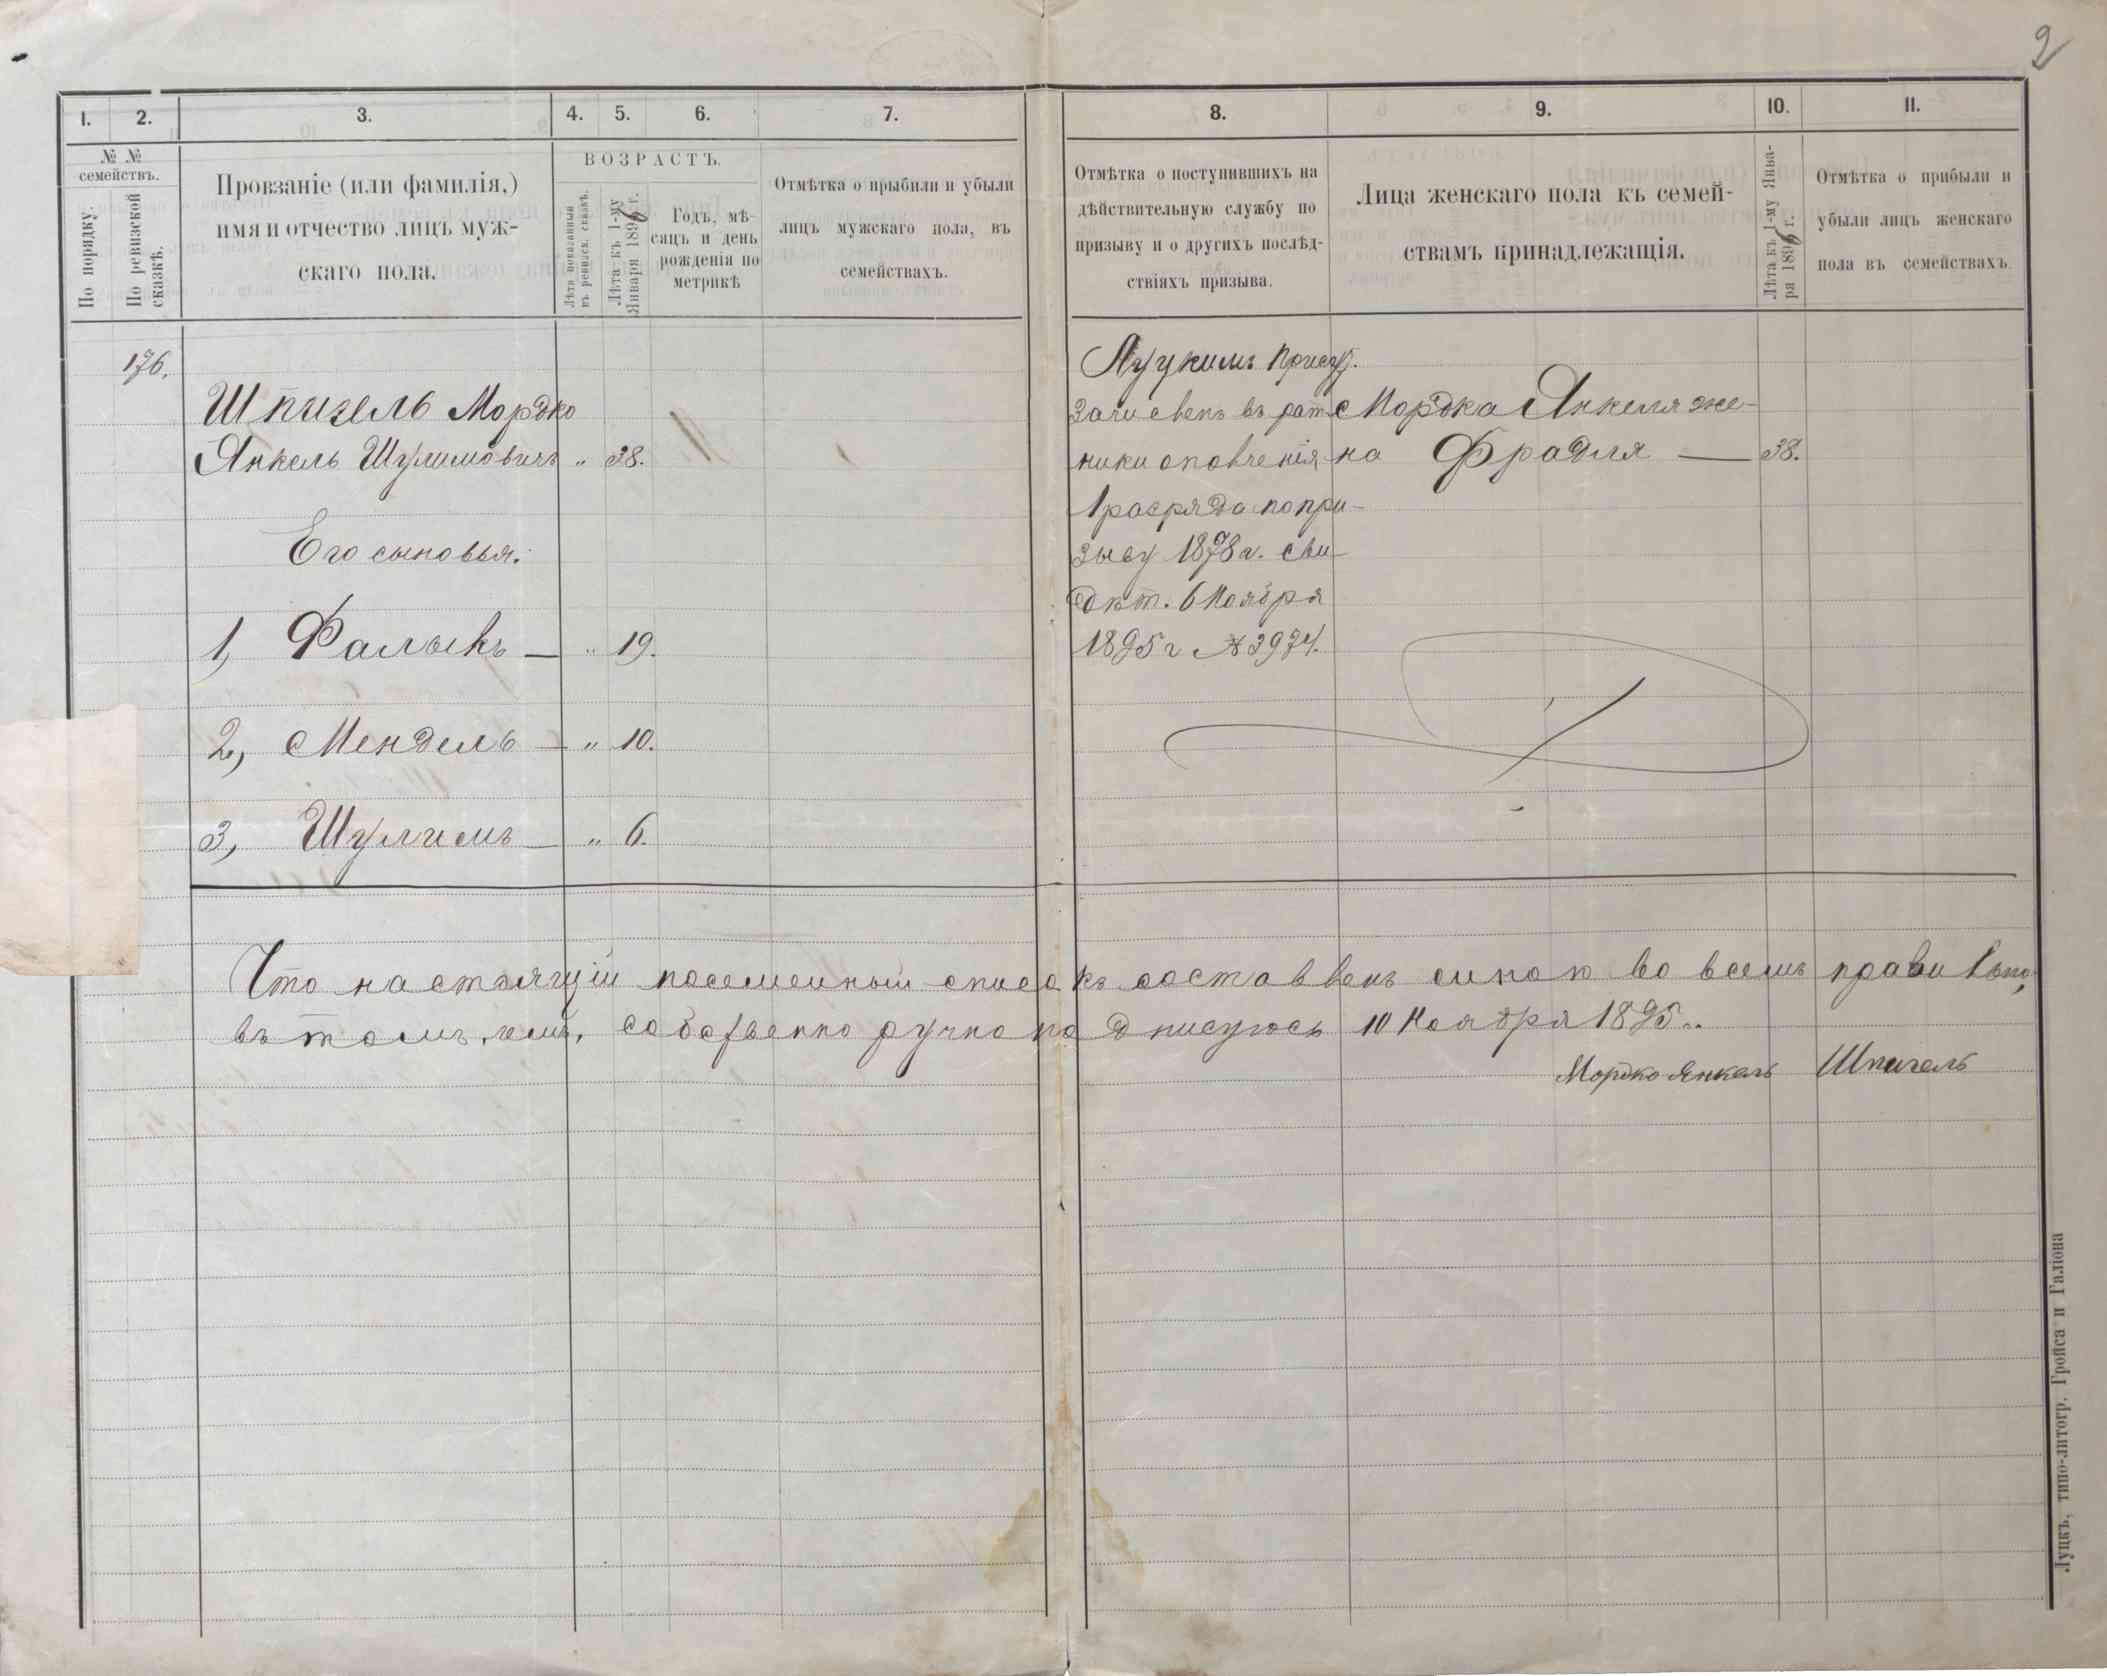 2
1. 2. 3. 4. 5. 6. 7. 8. 9. 10. 11.
№ № семействъ.
По порядку.
По ревизской сказкѣ.
Прозваніе (или фамилія,)
имя и отчество лицъ муж-
скаго пола.
ВОЗРАСТЪ.
Лѣта показанныя
въ ревизск. сказкѣ.
Лѣта къ 1-му
Января 1896 г.
Годъ, мѣ-
сяцъ и день
рожденія по
метрикѣ
Отмѣтка о прыбыли и убыли
лицъ мужскаго пола, въ
семействахъ.
Отмѣтка о поступившихъ на
дѣйствительную службу по
призыву и о другихъ послѣд-
ствіяхъ призыва.
Лица женскаго пола къ семей-
ствамъ принадлежащія.
Лѣта къ 1-му Янва-
ря 1896 г.
Отмѣтка о прибыли и
убыли лицъ женскаго
пола въ семействахъ.
176.
Шпигель Мордко
Янкель Шулимовичъ „ 38.
Его сыновья.
1, Фалыкъ — „ 19.
2, Мендель — „ 10.
3, Шулимъ — „ 6.
Луцкимъ присут.
зачисленъ въ рат-
ники ополченія
1 разряда по при-
зыву 1878 г. сви-
дѣт. 6 Ноября
1895 г №3974.
Мордка Янкеля же-
на Фрадля — 38.
Что настоящій посемейный списокъ составленъ мною во всемъ правильно,
въ томъ, собственно ручно подписуюсь 10 Ноября 1895..
Мордко Янкель Шпигель
Луцкъ, типо-литогр. Гройса и Галіона